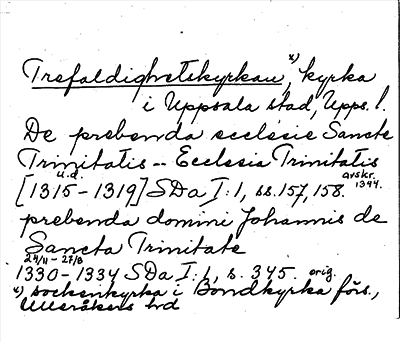 Trefaldighetskyrkan x), kyrka
i Uppsala stad, Upps. l.
De prebenda ecclesie Sancte
Trinitatis -- Ecclesia Trinitatis
u.d. avskr. 1344.
[1315-1319] SDa I:1, ss. 157, 158.
prebenda domini Johannis de
Sancta Trinitate
24/11 - 27/8
1330-1334 SDa I:1, s. 345. orig.
x) sockenkyrka i Bondkyrka förs.,
Ulleråkers hd